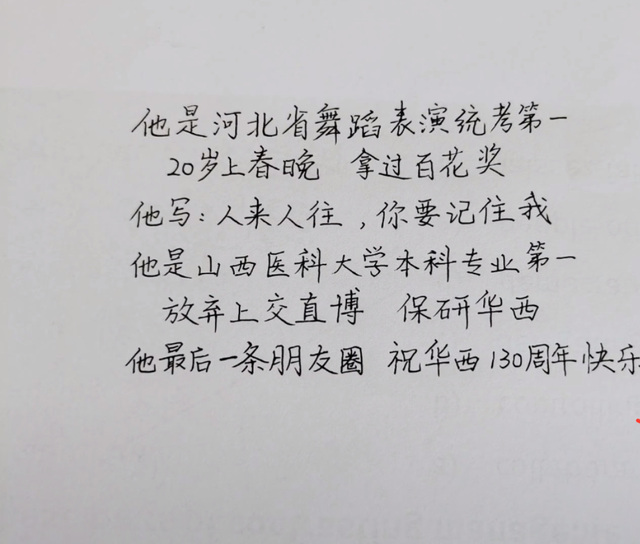 他是河北省舞蹈表演统考第一
20岁上春晚 拿过百花奖
他写：人来人往，你要记住我
他是山西医科大学本科专业第一
放弃上交直博 保研华西
他最后一条朋友圈 祝华西130周年快乐